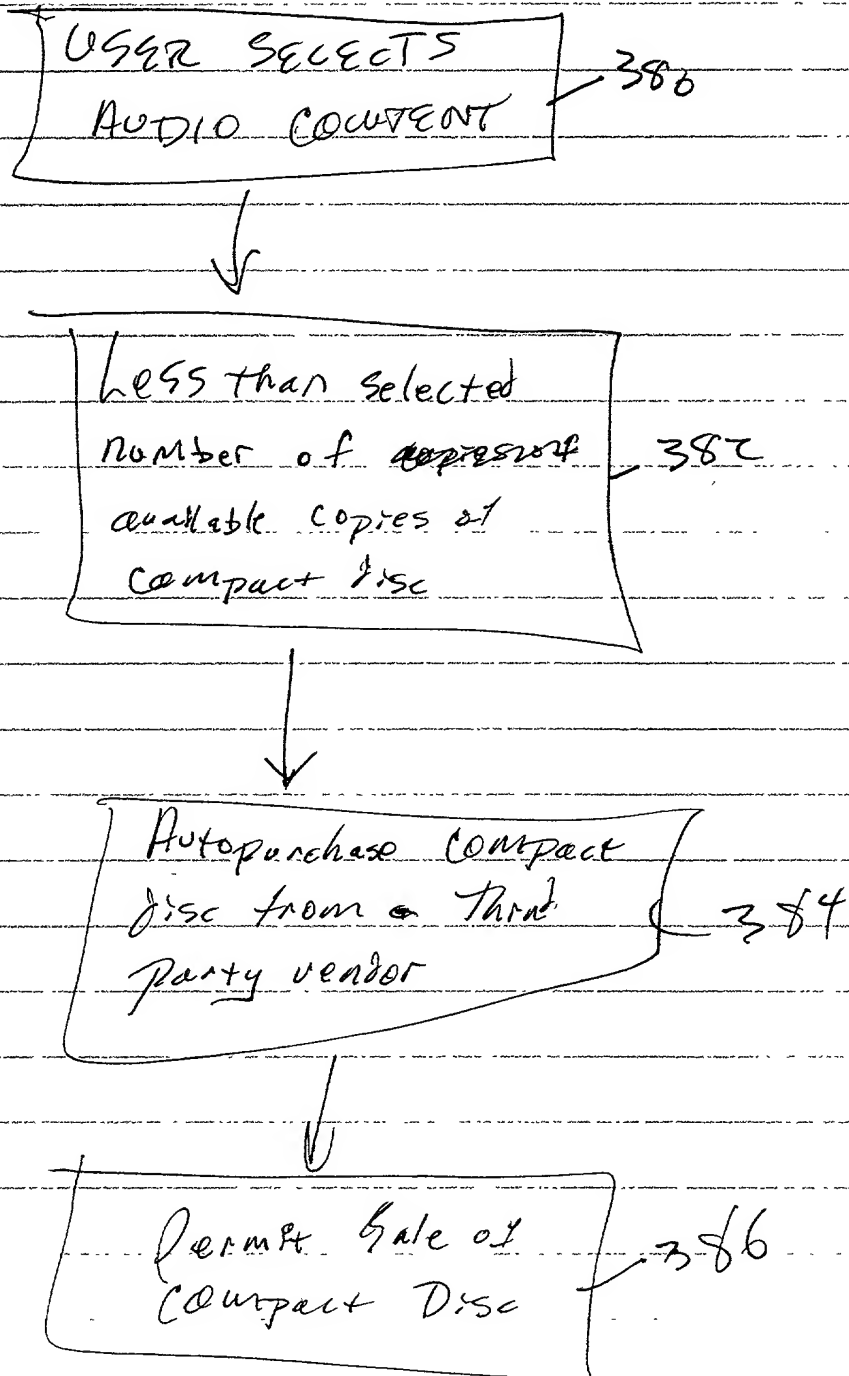 USER SELECTS
AUDIO CONTENT
380
Less than selected
number of
available copies of
compact disc
382
Autopurchase compact
disc from a third
party vendor
384
Permit Sale of
Compact Disc
386